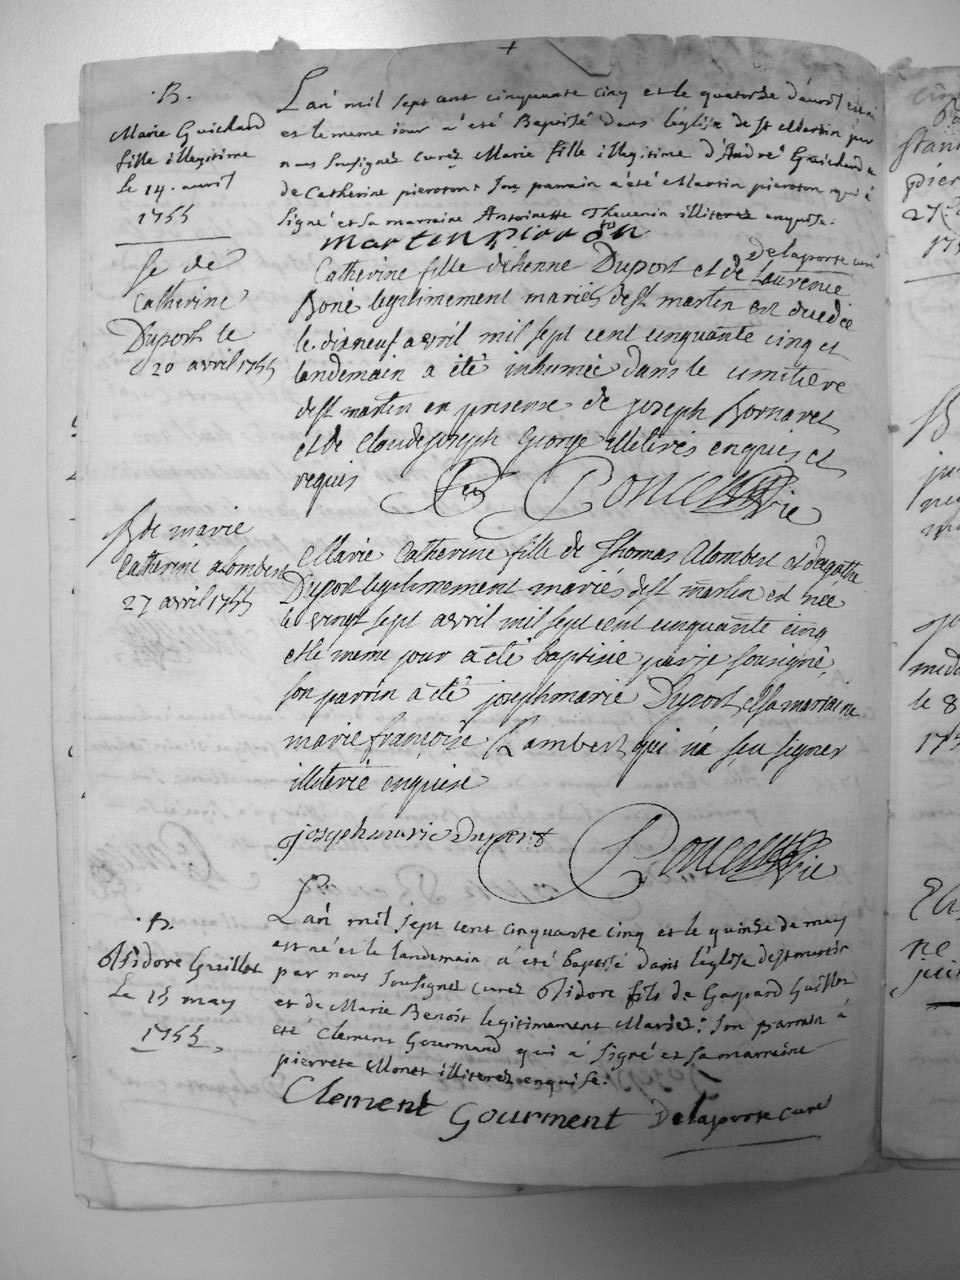 B.
Marie Guichard
fille illegitime
le 14. avril
1755
L'an mil sept cent cinquante cinq et le quatorze d'avril est né
et le meme iour a été Baptisé dans l'eglise de St Martin par
nous soussignez curez Marie fille illegitime d'André Guichard &
de Catherine pieroton: son parrain a été Martin pieroton qui a
signé et sa marraine Antoinette Thevenin illiterez enquise.
martin pirroton
Delaporte curé
Se de
Catherine
Duport le
20 avril 1755
Catherine fille detienne Duport et de Laurence
Boné legitimement mariés de st martin est decedée
le dixneuf avril mil sept cent cinquante cinq et
landemain a été inhumée dans le cimitiere
de st martin en presense de joseph Bornaret
et de claudejoseph George illiterés enquis et
requis
Poncet vic
B de marie
Catherine alombert
27 avril 1755
Marie Catherine fille de Thomas Alombert et dagathe
Duport legitimement mariés de st martin est née
le vingt sept avril mil sept cent cinquante cinq
et le meme jour a été baptisée par je sousigné,
son parrin a été josephmarie Duport et sa marraine
marie françoise Lambert qui na sçu signer
illiterée enquise
josephmarie Duport
Poncet vic
B.
Isidore Guillot
Le 15 may
1755
L'an mil sept cent cinquante cinq et le quinze de may
est né et le landemain a été baptisé dans l'eglise de st martin
par nous soussignez curez Isidore fils de Gaspard Guillot
et de Marie Benoit legitimement Mariez: son parrain a
été Clement Gourmand qui a signé et sa marraine
pierrete Monet illiterez enquise.
Clement Gourment
Delaporte curé